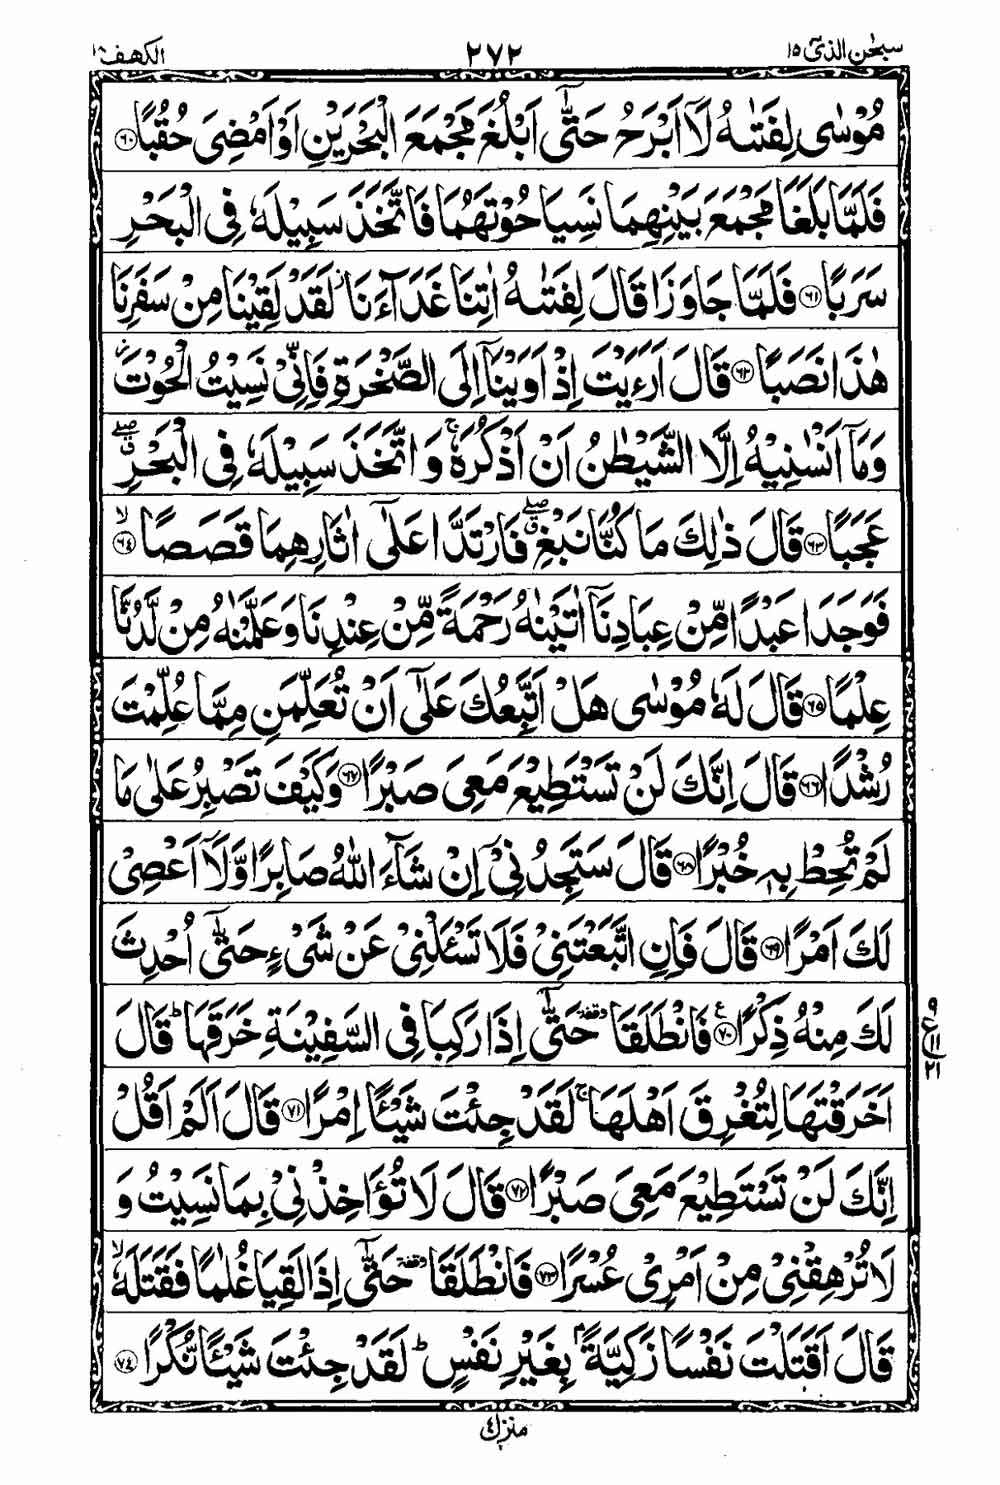 سبحٰن الذیٓ ١٥
٢٧٢
الكهف ١٨
مُوْسٰى لِفَتٰىهُ لَاۤ اَبْرَحُ حَتّٰۤى اَبْلُغَ مَجْمَعَ الْبَحْرَيْنِ اَوْ اَمْضِىَ حُقُبًا ﴿٦٠﴾
فَلَمَّا بَلَغَا مَجْمَعَ بَيْنِهِمَا نَسِيَا حُوْتَهُمَا فَاتَّخَذَ سَبِيْلَهٗ فِى الْبَحْرِ
سَرَبًا ﴿٦١﴾ فَلَمَّا جَاوَزَا قَالَ لِفَتٰىهُ اٰتِنَا غَدَآءَنَا ز لَقَدْ لَقِيْنَا مِنْ سَفَرِنَا
هٰذَا نَصَبًا ﴿٦٢﴾ قَالَ اَرَءَيْتَ اِذْ اَوَيْنَاۤ اِلَى الصَّخْرَةِ فَاِنِّىْ نَسِيْتُ الْحُوْتَ ز
وَمَاۤ اَنْسٰنِيْهُ اِلَّا الشَّيْطٰنُ اَنْ اَذْكُرَهٗ ۚ وَ اتَّخَذَ سَبِيْلَهٗ فِى الْبَحْرِ ۖق
عَجَبًا ﴿٦٣﴾ قَالَ ذٰلِكَ مَا كُنَّا نَبْغِ ۖق فَارْتَدَّا عَلٰۤى اٰثَارِهِمَا قَصَصًا ۙ﴿٦٤﴾
فَوَجَدَا عَبْدًا مِّنْ عِبَادِنَاۤ اٰتَيْنٰهُ رَحْمَةً مِّنْ عِنْدِنَا وَعَلَّمْنٰهُ مِنْ لَّدُنَّا
عِلْمًا ﴿٦٥﴾ قَالَ لَهٗ مُوْسٰى هَلْ اَتَّبِعُكَ عَلٰۤى اَنْ تُعَلِّمَنِ مِمَّا عُلِّمْتَ
رُشْدًا ﴿٦٦﴾ قَالَ اِنَّكَ لَنْ تَسْتَطِيْعَ مَعِىَ صَبْرًا ﴿٦٧﴾ وَكَيْفَ تَصْبِرُ عَلٰى مَا
لَمْ تُحِطْ بِهٖ خُبْرًا ﴿٦٨﴾ قَالَ سَتَجِدُنِىْۤ اِنْ شَآءَ اللّٰهُ صَابِرًا وَّلَاۤ اَعْصِىْ
لَكَ اَمْرًا ﴿٦٩﴾ قَالَ فَاِنِ اتَّبَعْتَنِىْ فَلَا تَسْـَٔلْنِىْ عَنْ شَىْءٍ حَتّٰۤى اُحْدِثَ
لَكَ مِنْهُ ذِكْرًا ﴿٧٠﴾ ع فَانْطَلَقَا وقفة حَتّٰۤى اِذَا رَكِبَا فِى السَّفِيْنَةِ خَرَقَهَا ؕ قَالَ
٩ ع ١١ ٢١
اَخَرَقْتَهَا لِتُغْرِقَ اَهْلَهَا ۚ لَقَدْ جِئْتَ شَيْـًٔا اِمْرًا ﴿٧١﴾ قَالَ اَلَمْ اَقُلْ
اِنَّكَ لَنْ تَسْتَطِيْعَ مَعِىَ صَبْرًا ﴿٧٢﴾ قَالَ لَا تُؤَاخِذْنِىْ بِمَا نَسِيْتُ وَ
لَا تُرْهِقْنِىْ مِنْ اَمْرِىْ عُسْرًا ﴿٧٣﴾ فَانْطَلَقَا وقفة حَتّٰۤى اِذَا لَقِيَا غُلٰمًا فَقَتَلَهٗ ۙ
قَالَ اَقَتَلْتَ نَفْسًا زَكِيَّةًۢ بِغَيْرِ نَفْسٍ ؕ لَقَدْ جِئْتَ شَيْـًٔا نُّكْرًا ﴿٧٤﴾
منزل ٤